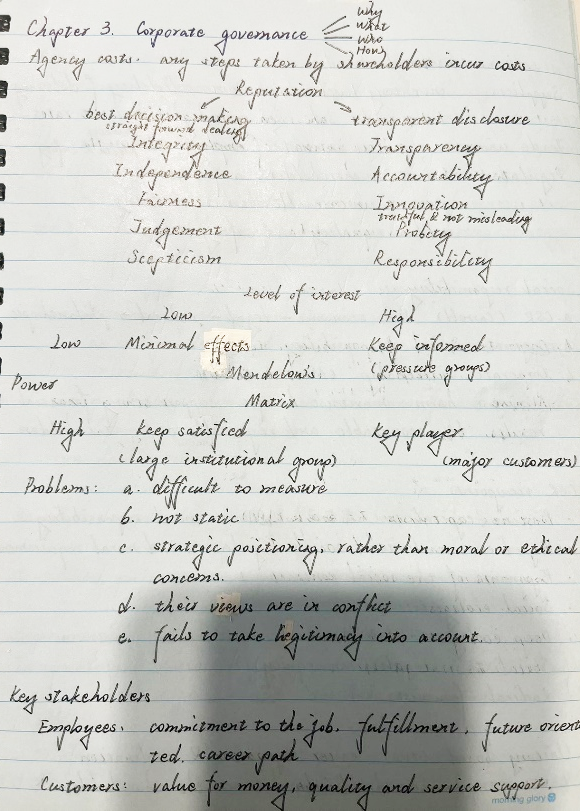 Why
What
Chapter 3. Corporate governance
Who
How
Agency costs. any steps taken by shareholders incur costs
Reputation
best decision making transparent disclosure
straight forward dealing
Integrity Transparency
Independence Accountability
Fairness Innovation
truthful & not misleading
Judgement Probity
Scepticism Responsibility
Level of interest
Low High
Low Minimal effects Keep informed
(pressure groups)
Mendelow's
Power
Matrix
High Keep satisfied Key player
(large institutional group) (major customers)
Problems: a. difficult to measure
b. not static
c. strategic positioning, rather than moral or ethical
concerns.
d. their views are in conflict
e. fails to take legitimacy into account.
Key stakeholders
Employees: commitment to the job. fulfillment, future orien
ted. career path
Customers: value for money, quality and service support.
morning glory